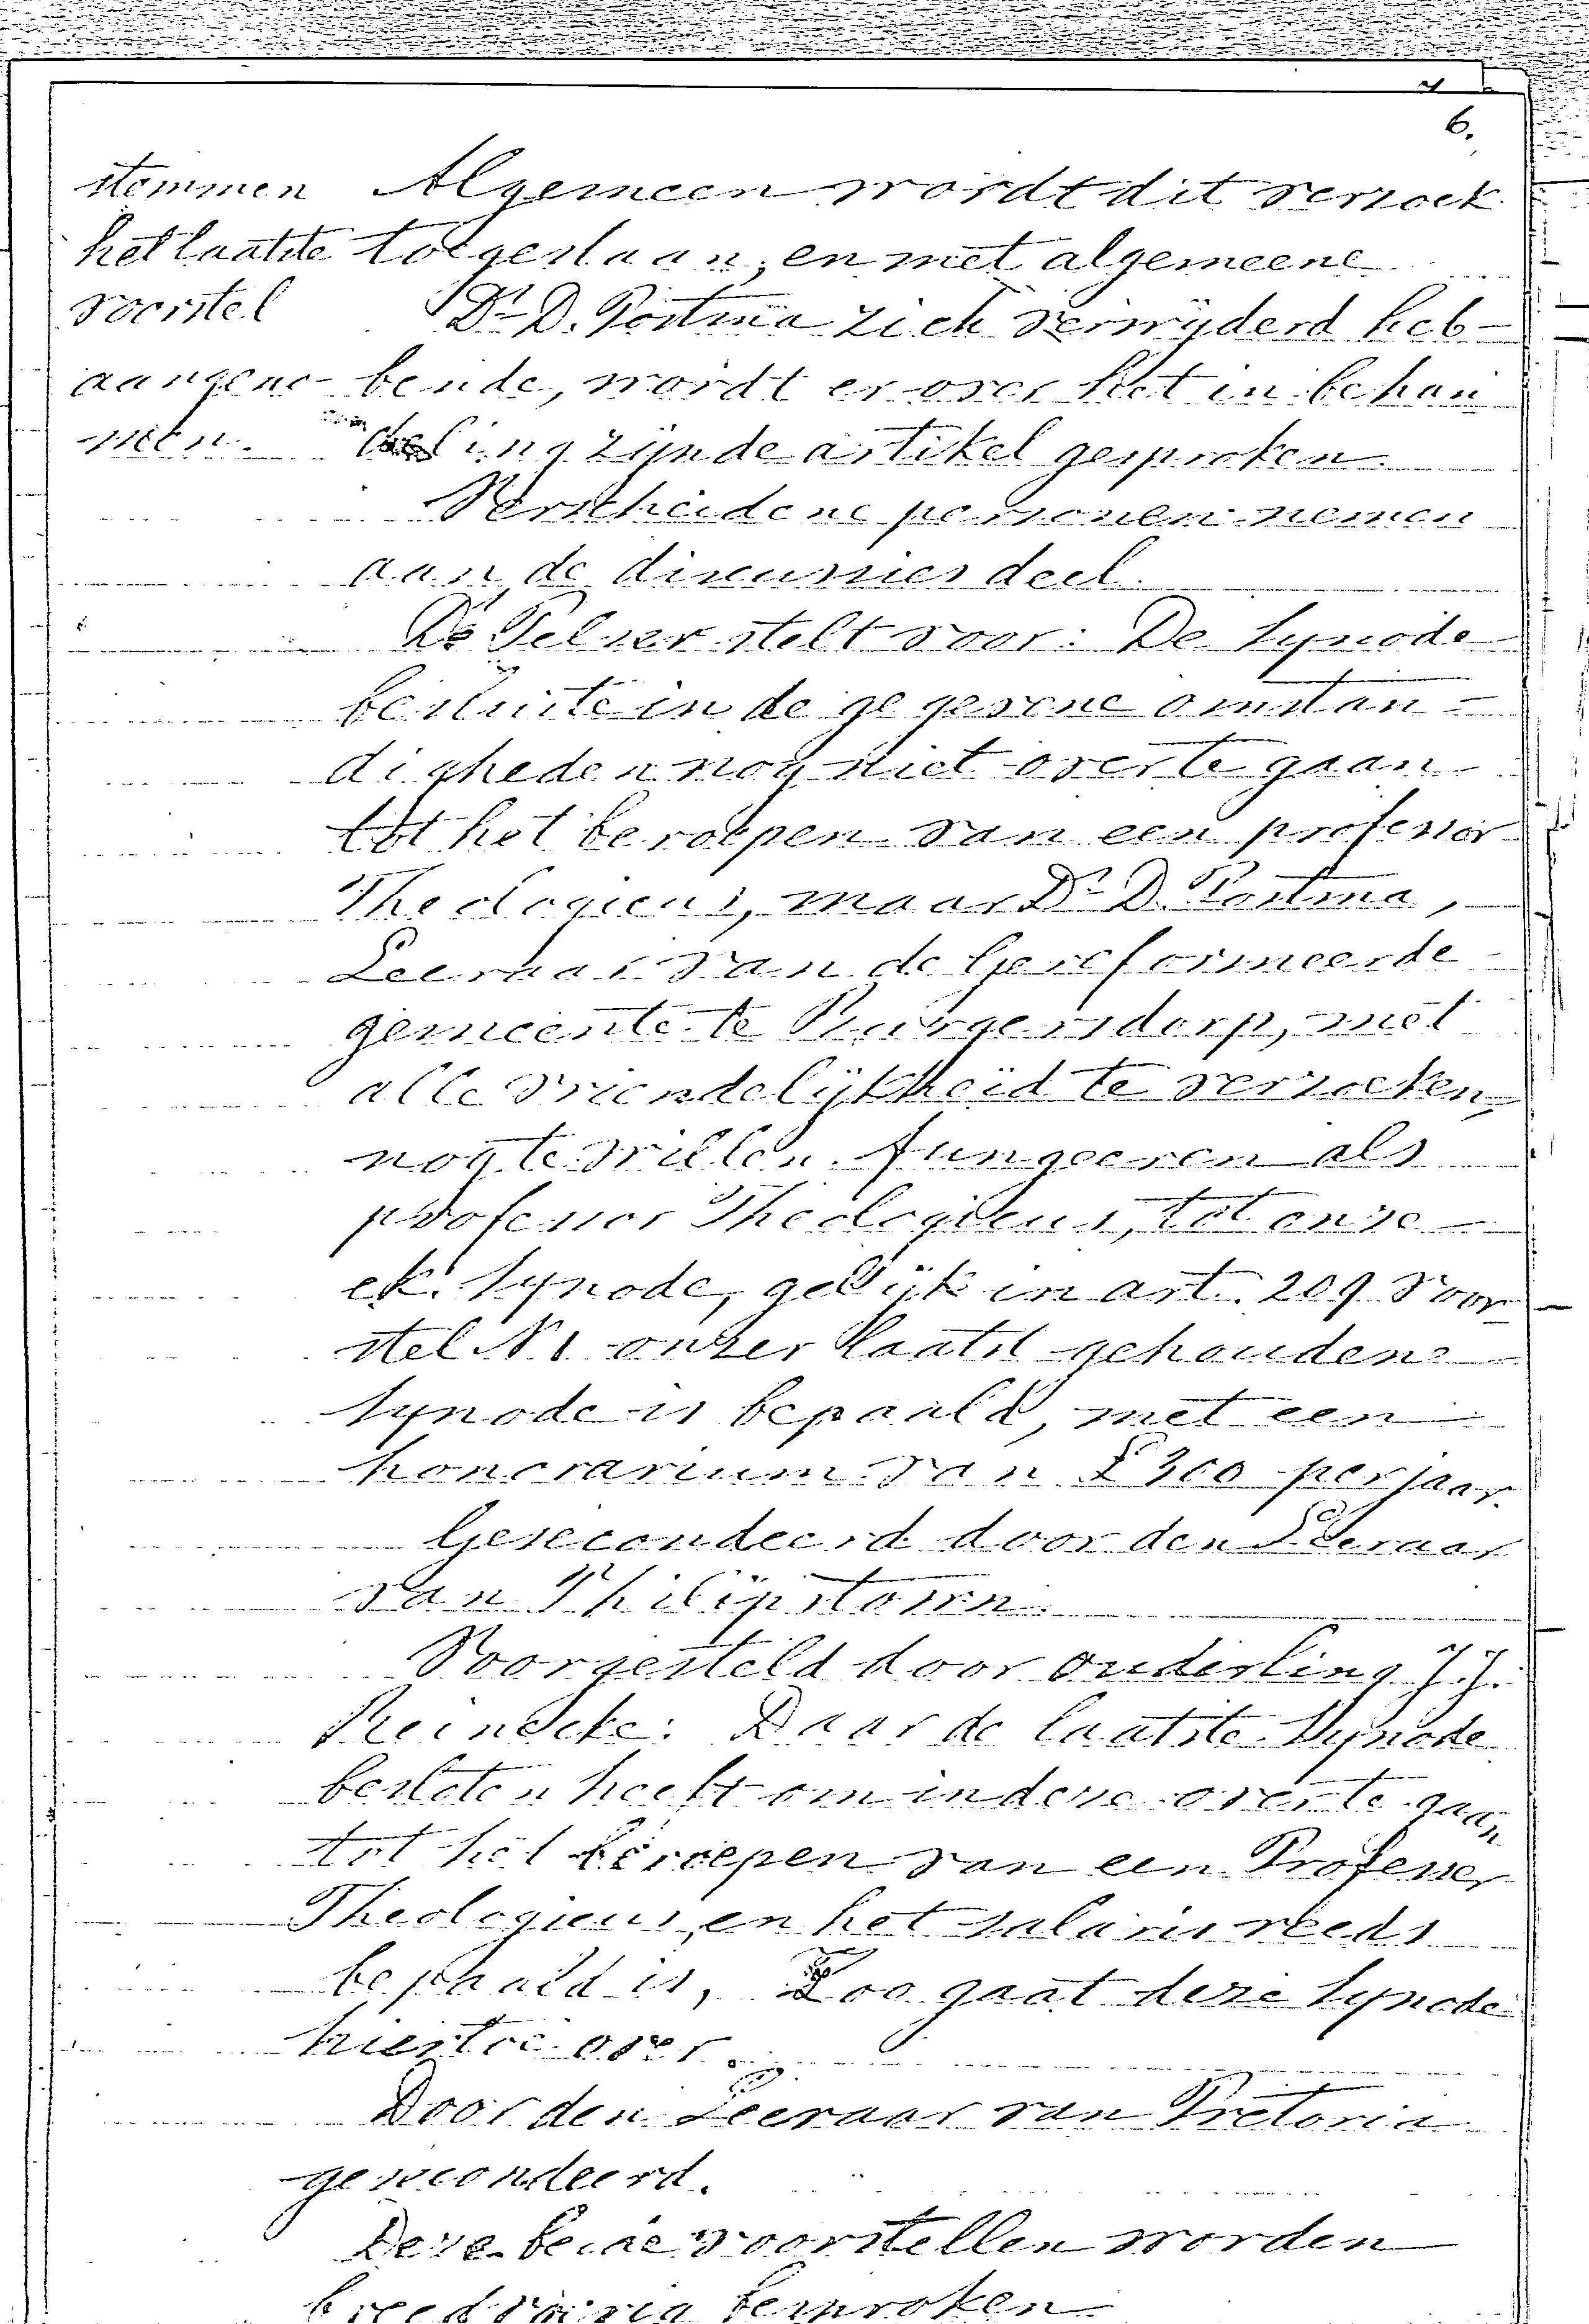 6.
stemmen Algemeen wordt dit verzoek
het laatste toegestaan, en met algemeene
voorstel Dr. D. Postma zich verwijderd heb-
aangeno- bende, wordt er over het in behan
men. deling zijnde artikel gesproken.
Verscheidene personen nemen
aan de discussies deel.
Ds Pelser stelt voor: De Synode
besluite in de gegevene omstan-
digheden nog niet over te gaan
tot het beroepen van een professor
Theologicus, maar Dr. D. Postma,
Leeraar van de Gereformeerde
gemeente te Burgersdorp, met
alle vriendelijkheid te verzoeken,
nog te willen fungeeren als
professor Theologicus, tot onze
ek. Synode, gelijk in art. 209 Voor
stel N. 1 onzer laatst gehoudene
Synode is bepaald, met een
honorarium van £300 per jaar.
Gesecondeerd door den Leeraar
van Philipstown.
Voorgesteld door ouderling J. J.
Reinecke: Daar de laatste Synode
besloten heeft om in deze over te gaan
tot het beroepen van een Professor
Theologicus, en het salaris reeds
bepaald is, Zoo gaat deze Synode
hiertoe over.
Door den Leeraar van Pretoria
gesecondeerd.
Deze beide voorstellen worden
breedvoerig besproken.